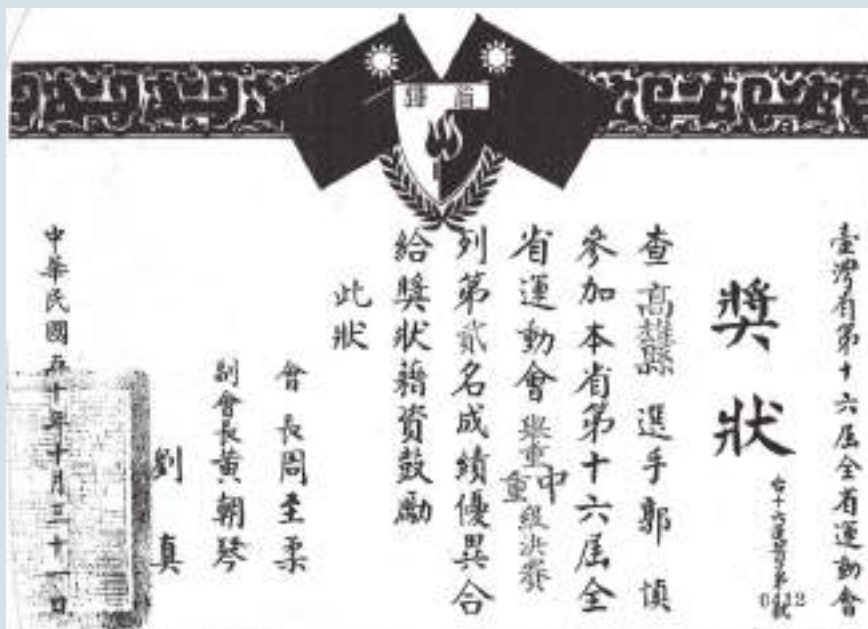 臺灣省第十六屆全省運動會
獎狀
0412
查高雄縣選手郭慎
參加本省第十六屆全
省運動會舉重中重級決賽
列第貳名成績優異合
給獎狀藉資鼓勵
此狀
會長周至柔
副會長黃朝琴
劉真
中華民國五十年十月三十一日